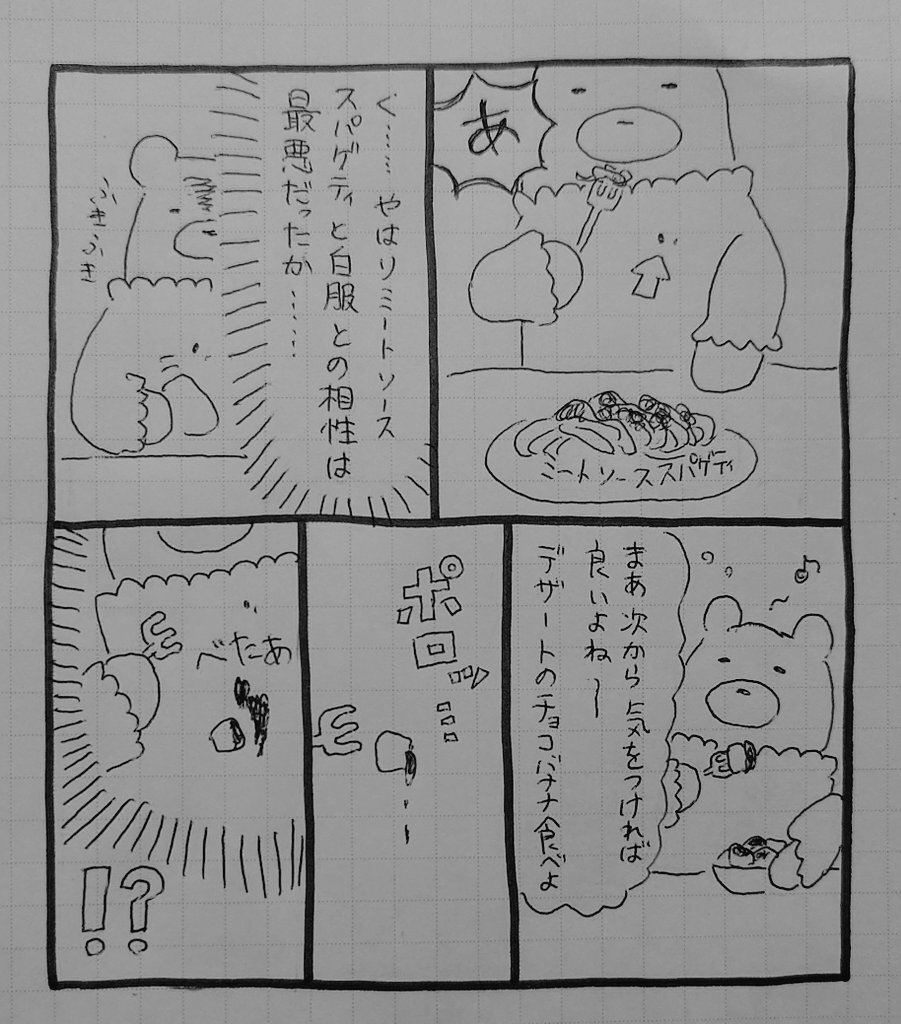 あ
ミートソーススパゲティ
ぐ……やはりミートソース
スパゲティと白服との相性は
最悪だったか……
ふきふき
まあ次から気をつければ
良いよね〜
デザートのチョコバナナ食べよ
ポロッ…
べたあ
!?